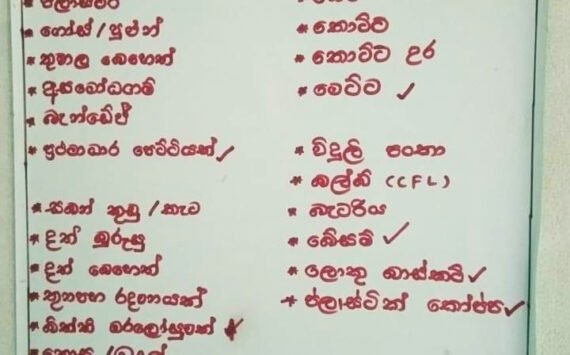 ප්ලාස්ටර්
ගෝස් / පුළුන්
තුවාල බෙහෙත්
අයඩෝධගම්
බැන්ඩේජ්
ප්‍රථමාධාර පෙට්ටියක්
සබන් කුඩු / කැට
දත් බුරුසු
දත් බෙහෙත්
කුනුපහ රදනයක්
බිත්ති ඔරලෝසුවක්
කොට්ට
කොට්ට උර
මෙට්ට
විදුලි පංකා
බල්බ් (CFL)
බැටරිය
බේසම්
ලොකු බාස්කට්
ප්ලාස්ටික් කෝප්ප